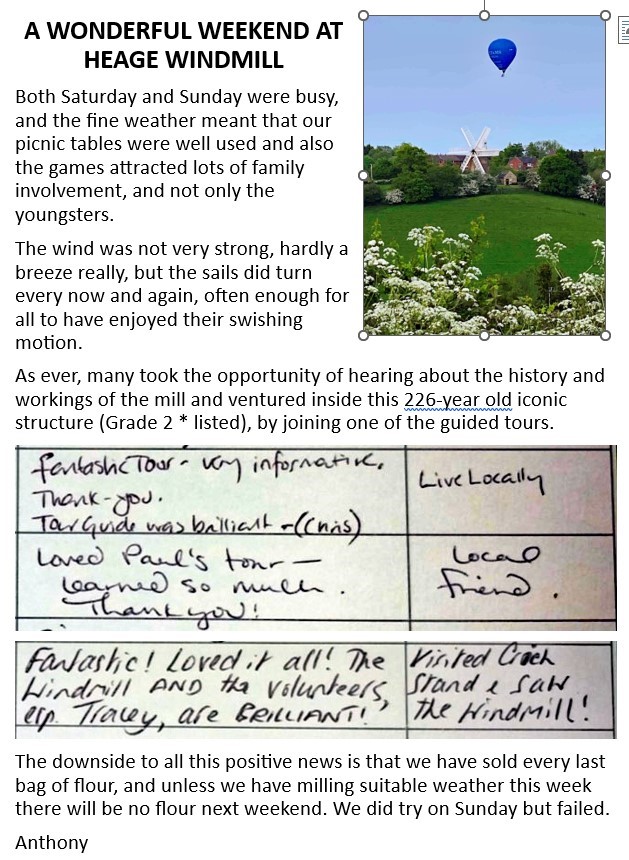 A WONDERFUL WEEKEND AT
HEAGE WINDMILL
Both Saturday and Sunday were busy,
and the fine weather meant that our
picnic tables were well used and also
the games attracted lots of family
involvement, and not only the
youngsters.
The wind was not very strong, hardly a
breeze really, but the sails did turn
every now and again, often enough for
all to have enjoyed their swishing
motion.
As ever, many took the opportunity of hearing about the history and
workings of the mill and ventured inside this 226-year old iconic
structure (Grade 2 * listed), by joining one of the guided tours.
fantastic Tour - very informative.
Thank-you.
Tour Guide was brilliant - (Chris)
Live Locally
Loved Paul's tour —
Learned so much.
Thank you!
Local
friend.
Fantastic! Loved it all! The
Windmill AND the Volunteers,
esp. Tracey, are BRILLIANT!
Visited Crich
Stand & saw
the Windmill!
The downside to all this positive news is that we have sold every last
bag of flour, and unless we have milling suitable weather this week
there will be no flour next weekend. We did try on Sunday but failed.
Anthony